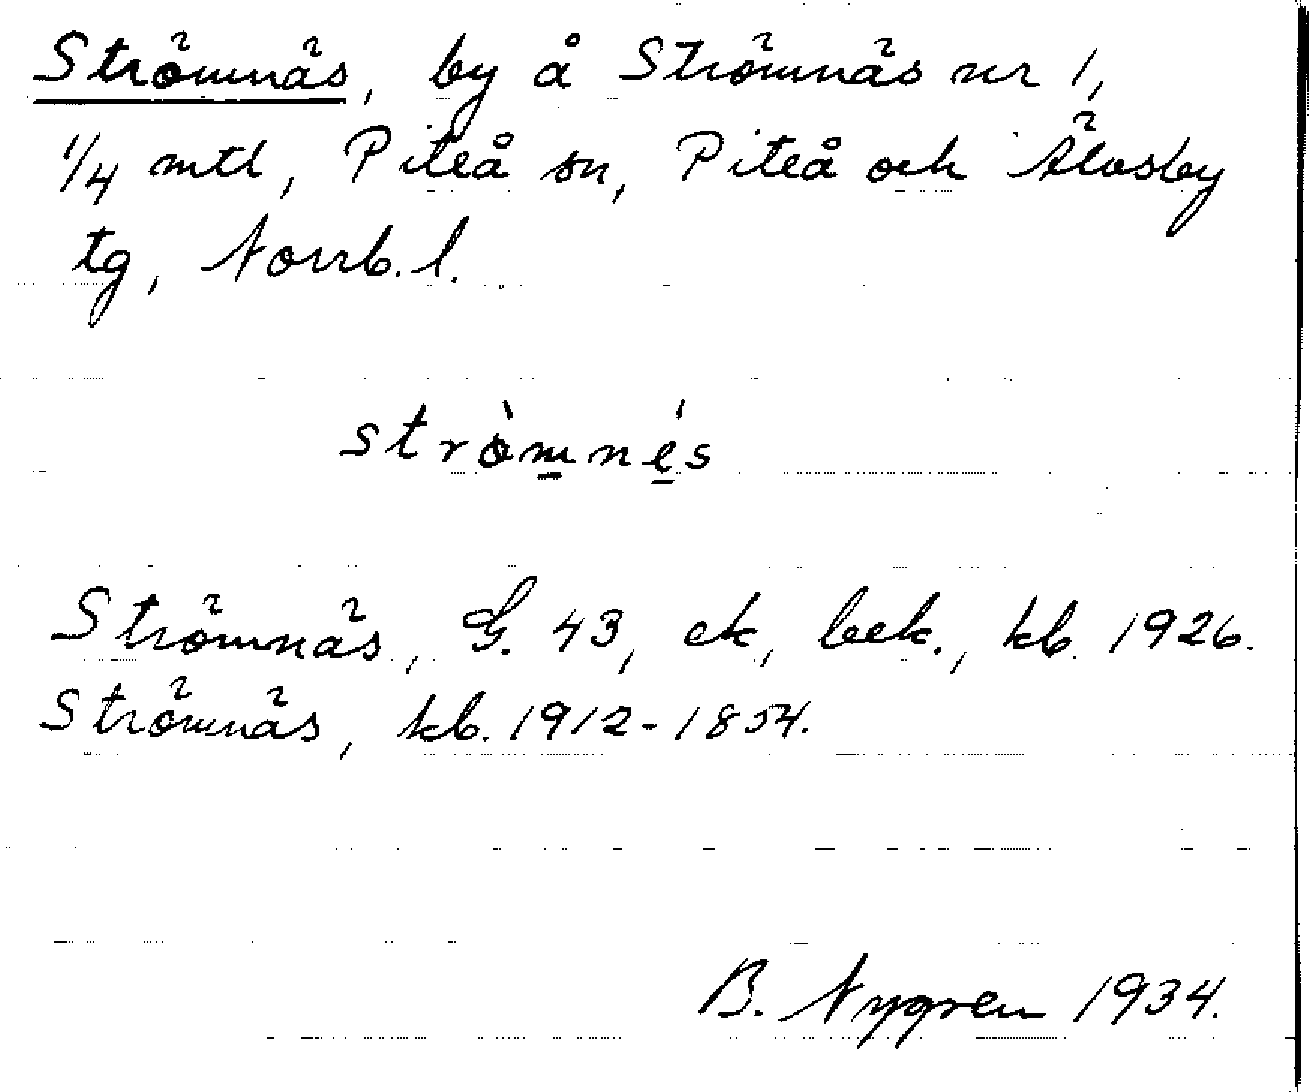 Strömnäs, by å Strömnäs nr 1,
1/4 mtl, Piteå sn, Piteå och Älvsby
tg, Norrb. l.
strò̱mnés
Strömnäs, G. 43, ek, bek., kb. 1926.
Strömnäs, kb. 1912-1854.
B. Nygren 1934.